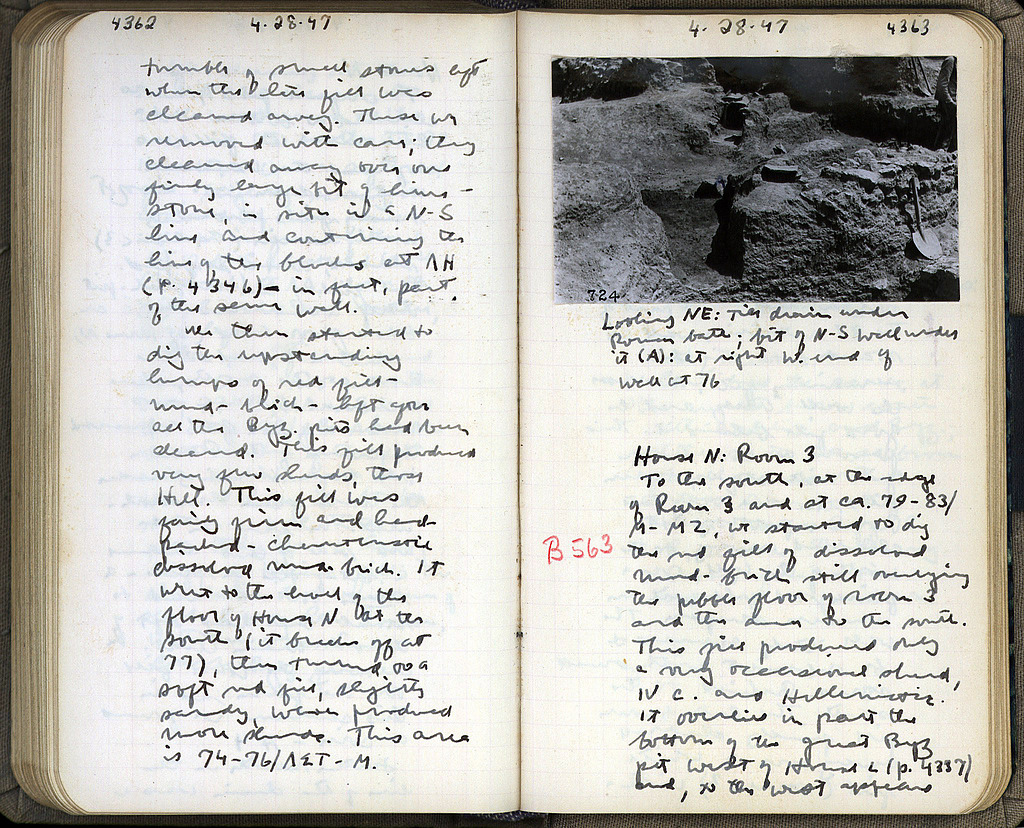 4362 4-28-47
tumble of small stones left
when the late fill was
cleared away. These we
removed with care; they
cleared away over one
fairly large bit of lime-
stone, in situ in a N-S
line and continuing the
line of the blocks at ΛΗ
(p. 4346) - in fact, part
of the same wall.
We then started to
dig the upstanding
lumps of red fill -
mud-brick - left after
all the Byz pits had been
cleared. This fill produced
very few sherds, those
Hell. This fill was
fairly firm and hard
packed - characteristic
dissolved mud brick. It
went to the level of the
floor of House N at the
south (it breaks off at
77), then turned to a
soft red fill, slightly
sandy, which produced
more sherds. This area
is 74-76/ΛΣΤ-Μ.
4-28-47 4363
724
Looking NE: Tile drain under
Roman bath; bit of N-S wall under
it (A): at right W. end of
wall at 76
House N: Room 3
To the south, at the edge
of Room 3 and at ca. 79-83/
M-M2, we started to dig
the red fill of dissolved
mud-brick still overlying
the pebble floor of room 3
and the area to the south.
This fill produced only
a very occasional sherd,
IV c. and Hellenistic.
It overlies in part the
bottom of the great Byz
pit west of House L (p. 4337)
and, to the west appears
B 563